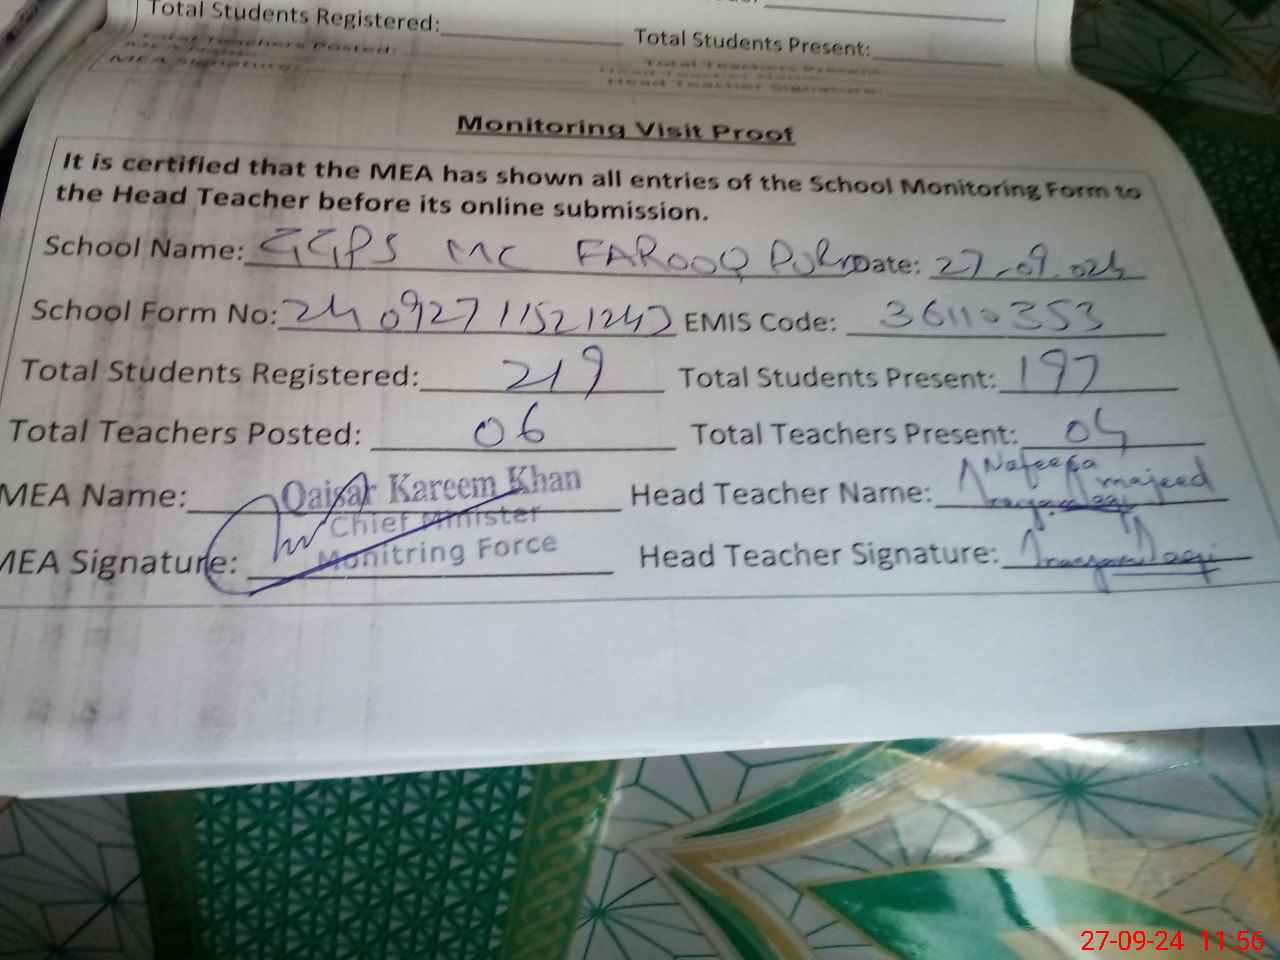 Total Students Registered:
Total Students Present:
Total Teachers Posted:
MEA Signature:
Head Teacher Signature:
Monitoring Visit Proof
It is certified that the MEA has shown all entries of the School Monitoring Form to
the Head Teacher before its online submission.
School Name: GGPS MC FAROOQ PURA Date: 27-09-024
School Form No: EMIS Code: 36110353
Total Students Registered: 219 Total Students Present: 197
Total Teachers Posted: 06 Total Teachers Present:
MEA Name: Qaisar Kareem Khan Head Teacher Name: Nafeesa majeed
Chief Minister
MEA Signature: Monitring Force Head Teacher Signature:
27-09-24 11:56